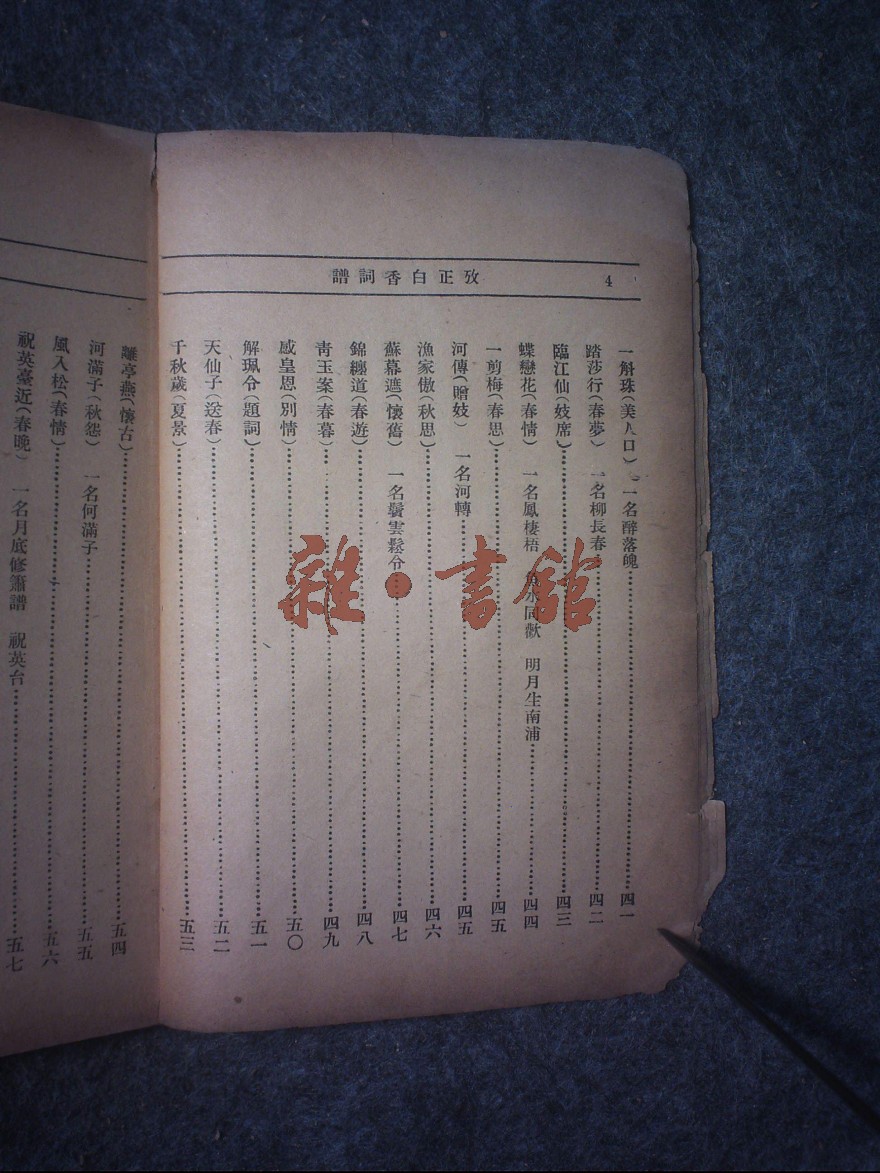 攷正白香詞譜
4
一斛珠（美人口） （一名醉落魄……四一
踏莎行（春夢） 一名柳長春……四二
臨江仙（妓席）……四三
蝶戀花（春情） 一名鳳棲梧 同歡 明月生南浦……四四
一剪梅（春思）……四五
河傳（贈妓） 一名河轉……四五
漁家傲（秋思）……四六
蘇幕遮（懷舊） 一名鬢雲鬆令……四七
錦纏道（春遊）……四八
靑玉案（春暮）……四九
感皇恩（別情）……五〇
解珮令（題詞）……五一
天仙子（送春）……五二
千秋歲（夏景）……五三
離亭燕（懷古）……五四
河滿子（秋怨） 一名何滿子……五五
風入松（春情）……五六
祝英臺近（春晚） 一名月底修簫譜 祝英台……五七
雜·書館